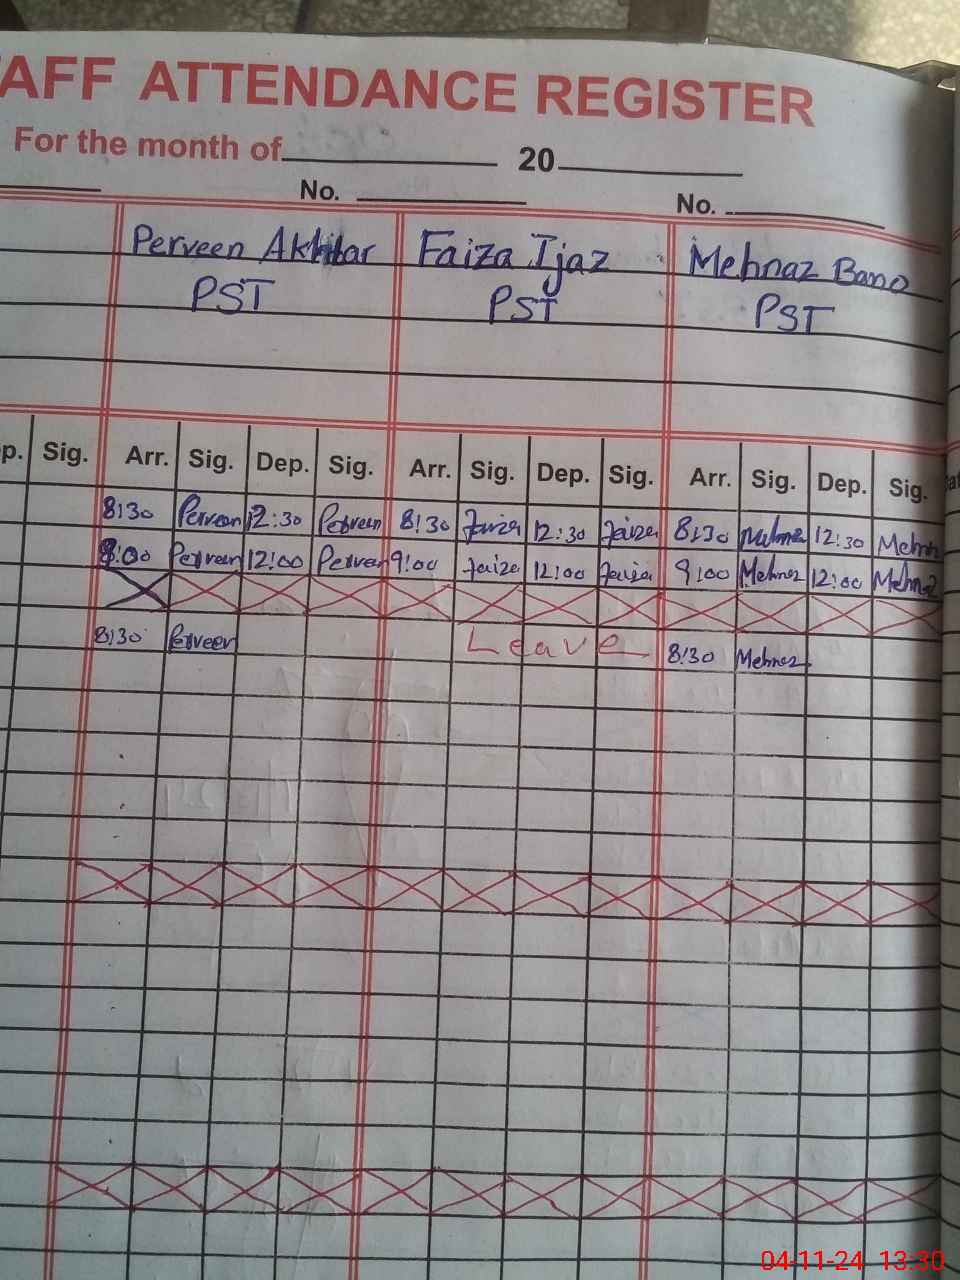 AFF ATTENDANCE REGISTER
For the month of 20
No. No.
Perveen Akhtar Faiza Ijaz Mehnaz Bano
PST PST PST
p. Sig. Arr. Sig. Dep. Sig. Arr. Sig. Dep. Sig. Arr. Sig. Dep. Sig.
8:30 Perveen 12:30 Perveen 8:30 Faiza 12:30 Faiza 8:30 Mehnaz 12:30 Mehn
8:00 Perveen 12:00 Perveen 9:00 Faiza 12:00 Faiza 9:00 Mehnaz 12:00 Mehnaz
8:30 Perveen Leave 8:30 Mehnaz
04-11-24 13:30